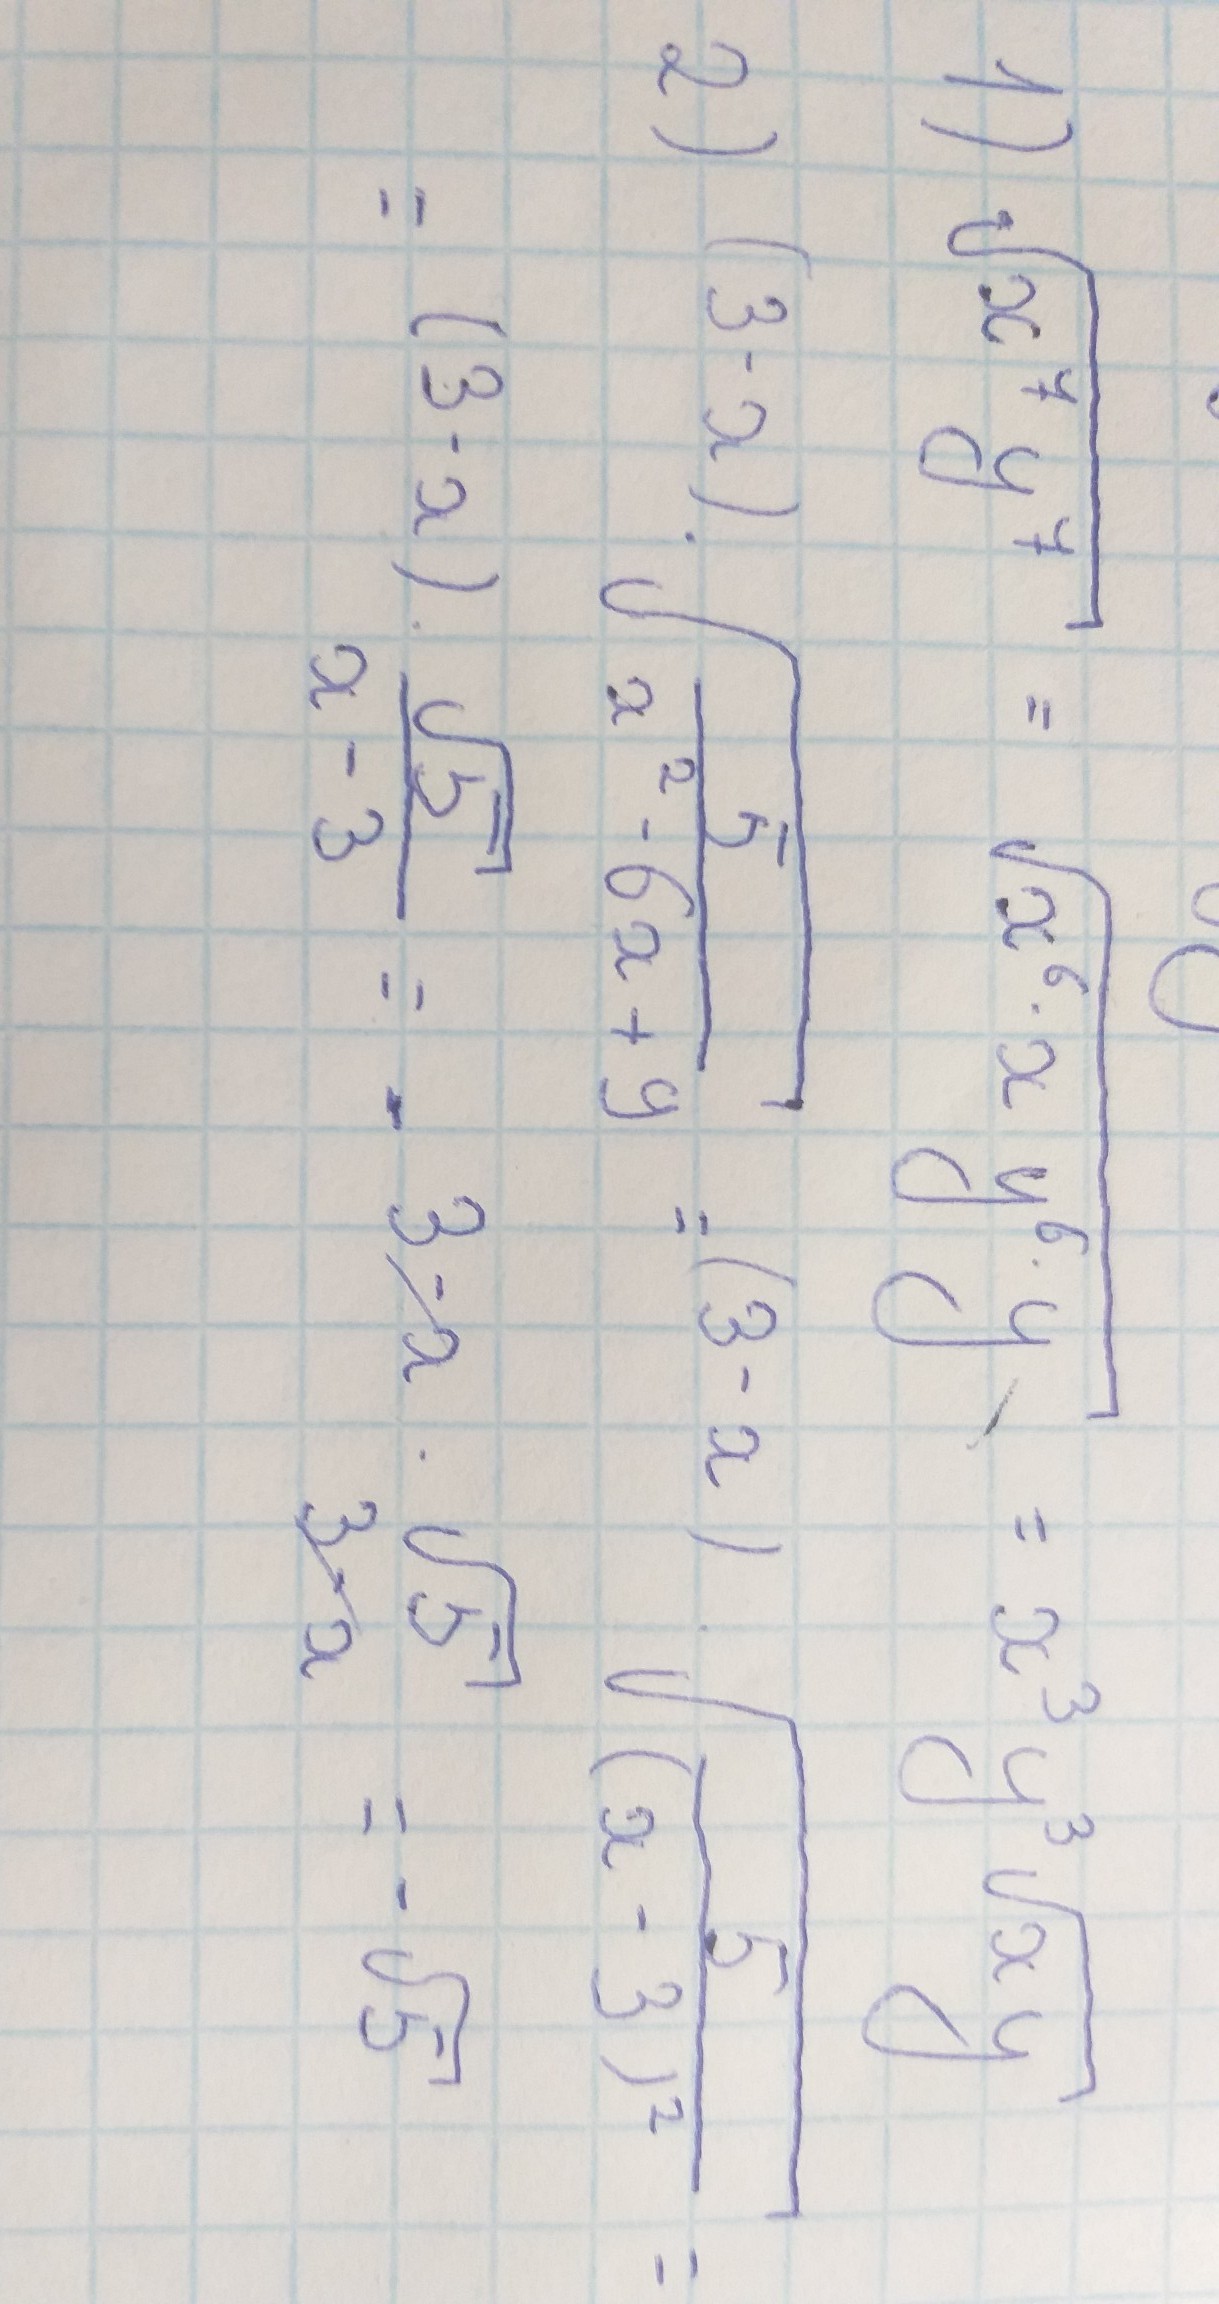 1) √(x⁷y⁷) = √(x⁶·x y⁶·y) = x³y³√(xy)
2) (3-x)·√(5/(x²-6x+9)) = (3-x)·√(5/(x-3)²) =
= (3-x)·√5/(x-3) = - 3-x · √5/(3-x) = -√5